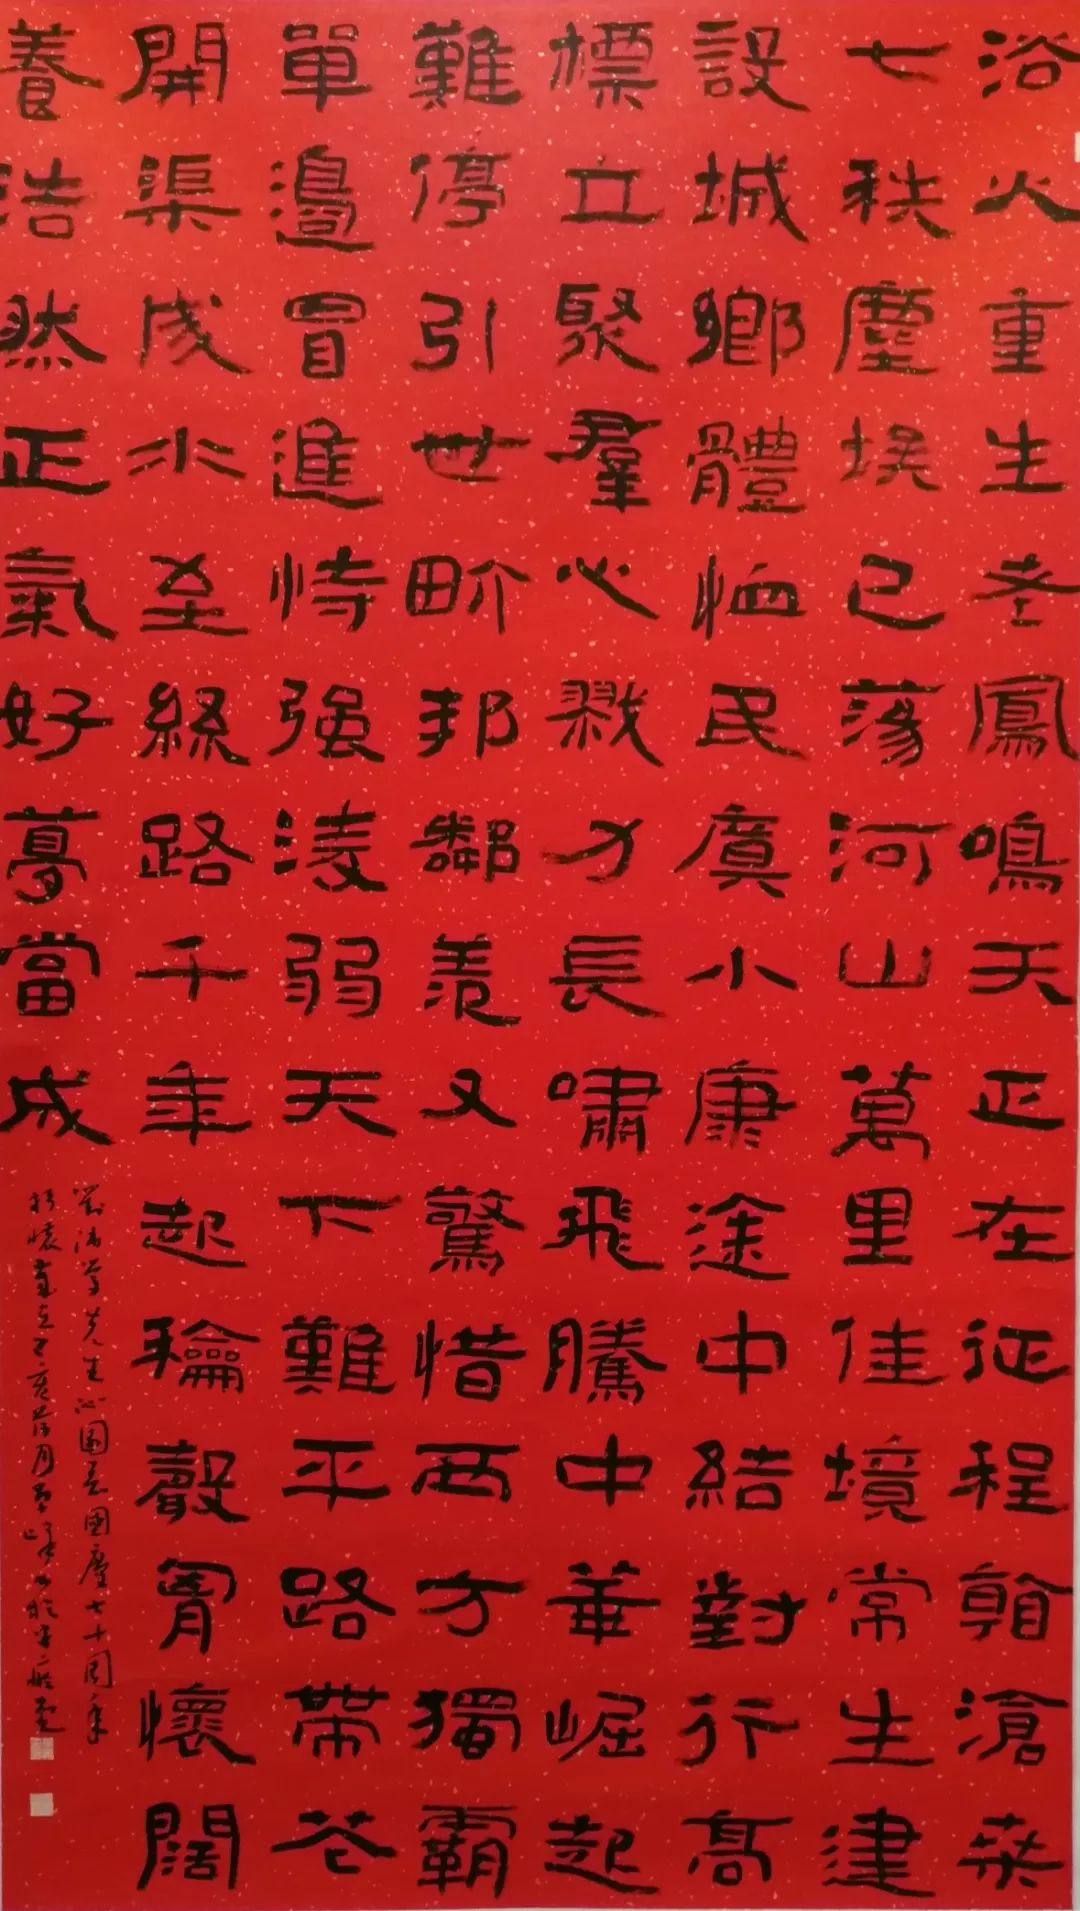 浴火重生老鳳鳴天正在征程滄桑
七秩塵埃已落河山萬里佳境常生建
設城鄉體恤民虞小康途中結對行高
標立聚羣心戮力長嘯飛騰中華崛起
難停引世畍邦鄰羨又驚惜西方獨霸
單邊冒進恃強淩弱天下難平路帶花
開渠成水至絲路千年起聲胸懷闊
養浩然正氣好夢當成
劉先生沁園春國慶七十周年
抒懷歲在己亥月於半